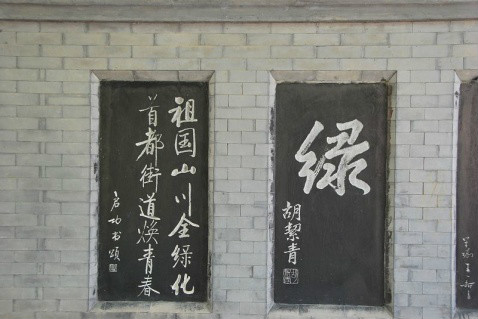 祖国山川全绿化
首都街道焕青春
启功书颂
绿
胡絜青